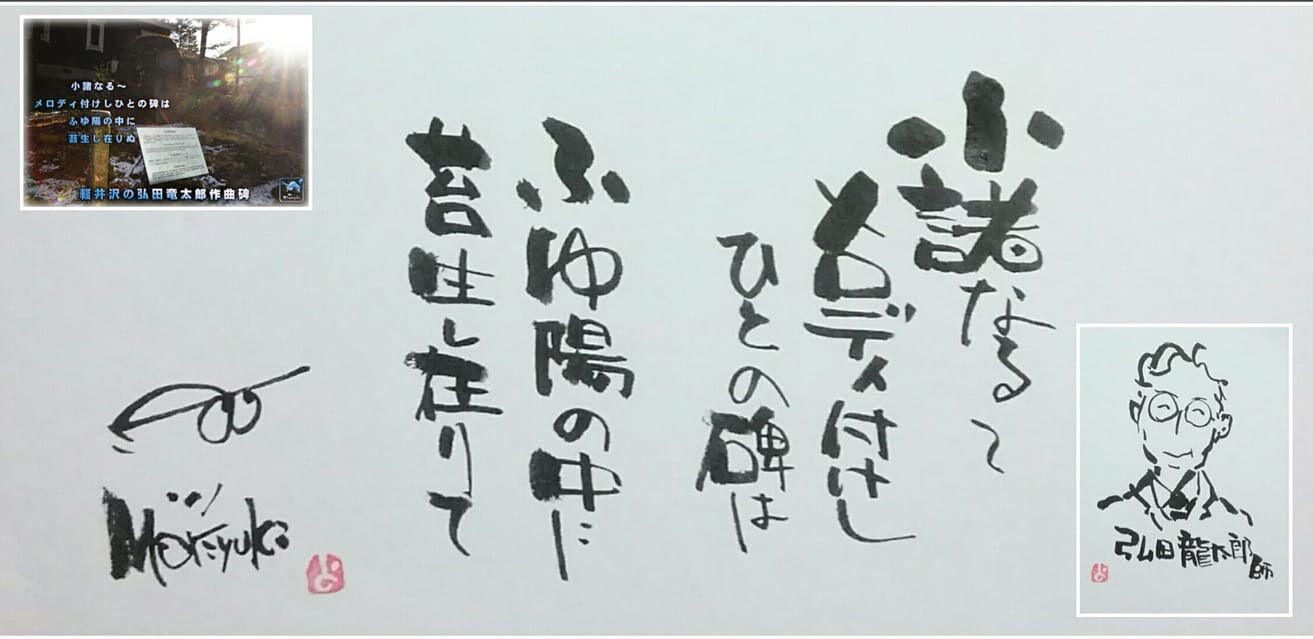 小諸なる〜
メロディ付けし
ひとの碑は
ふゆ陽の中に
苔生し在りて
Moriyuki
小諸なる〜
メロディ付けしひとの碑は
ふゆ陽の中に
苔生し在りぬ
軽井沢の弘田竜太郎作曲碑
弘田龍太郎師